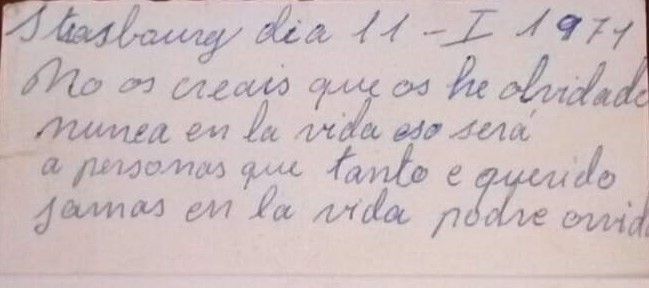 Strasbourg dia 11-I 1971
No os creais que os he olvidado
nunca en la vida eso será
a personas que tanto e querido
jamas en la vida podre orvid